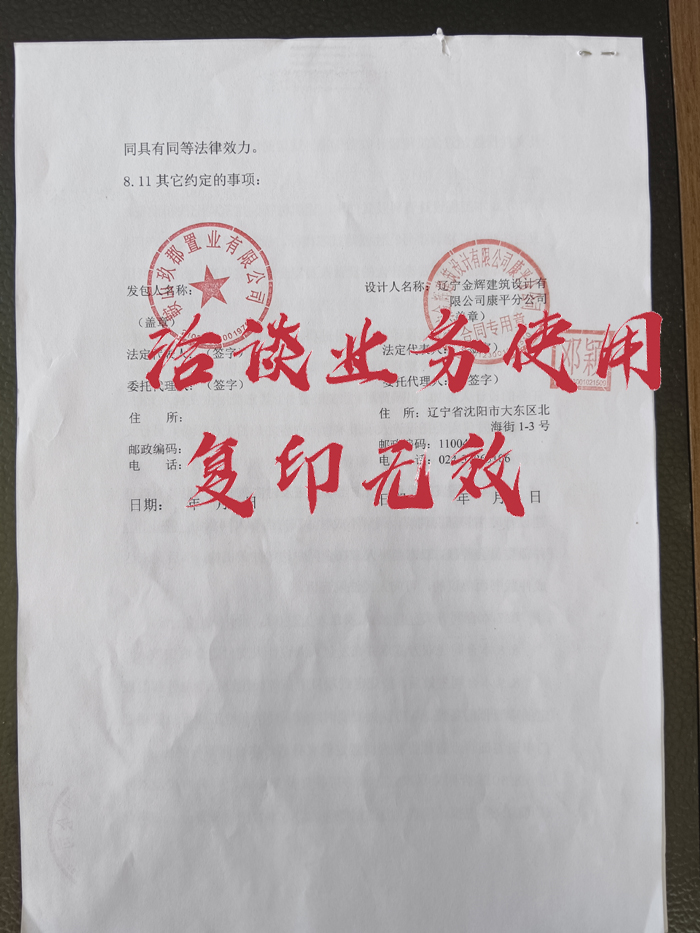 同具有同等法律效力。
8.11其它约定的事项：
鞍山玖郡置业有限公司
发包人名称：
（盖章）
法定代表人：（签字）
委托代理人：（签字）
住　所：
邮政编码：
电　话：
日期：　年　月　日
设计人名称：辽宁金辉建筑设计有
限公司康平分公司
（盖章）
合同专用章
法定代表人：
邓颖
委托代理人：（签字）
住　所：辽宁省沈阳市大东区北
海街1-3号
邮政编码：11004
电　话：024
年　月　日
洽谈业务使用
复印无效